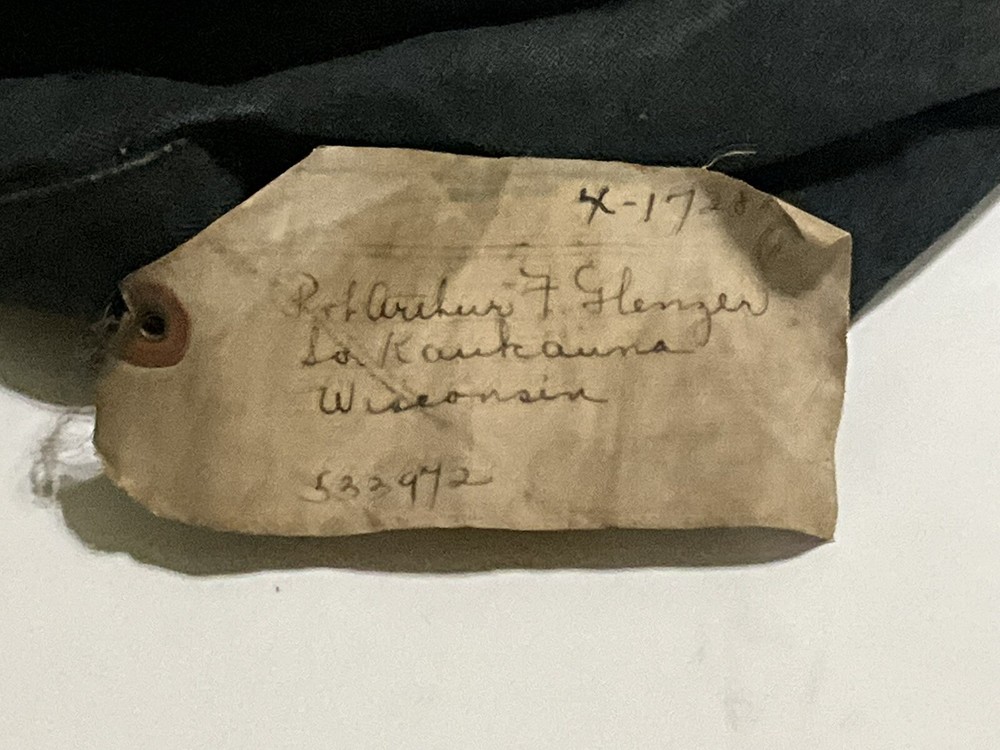 X-1728
Pvt Arthur F. Glenzer
So Kaukauna
Wisconsin
533972